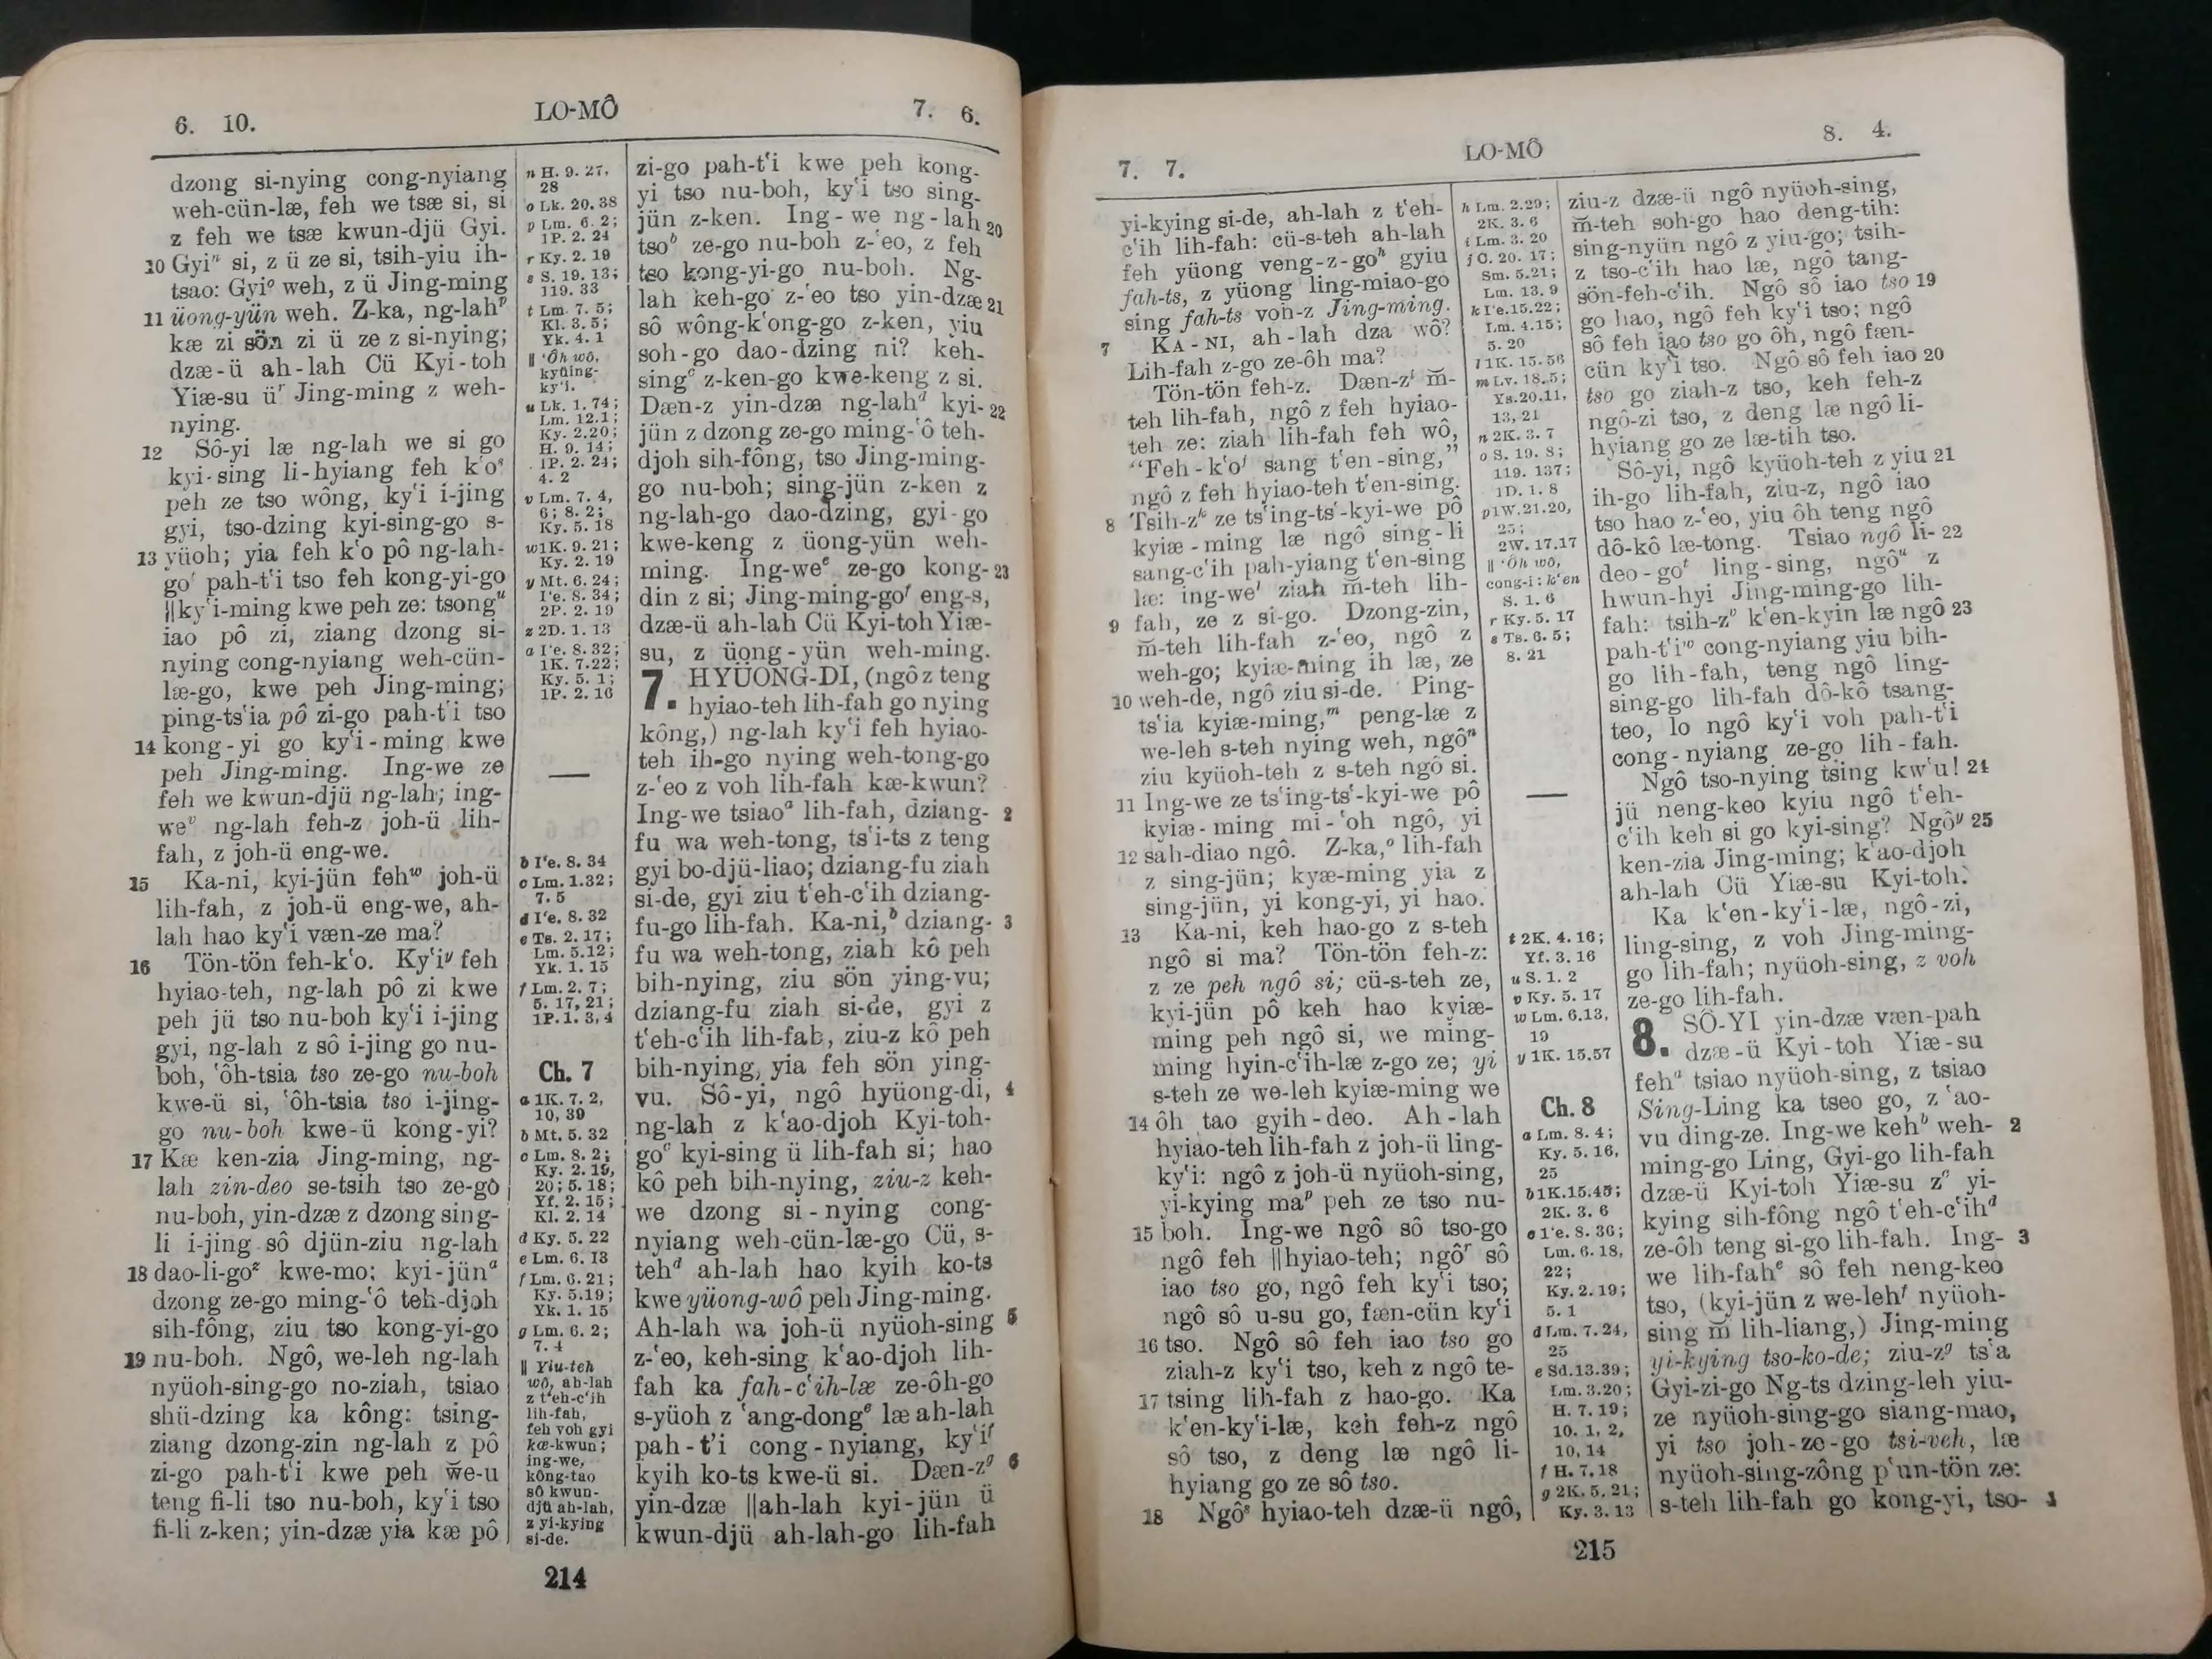 6. 10.
LO-MÔ
7. 6.
dzong si-nying cong-nyiang
weh-cün-læ, feh we tsæ si, si
z feh we tsæ kwun-djü Gyi.
10 Gyiⁿ si, z ü ze si, tsih-yiu ih-
tsao: Gyiᵒ weh, z ü Jing-ming
11 üong-yün weh. Z-ka, ng-lahᵖ
kæ zi sön zi ü ze z si-nying;
dzæ-ü ah-lah Cü Kyi-toh
Yiæ-su üʳ Jing-ming z weh-
nying.
12 Sô-yi læ ng-lah we si go
kyi-sing li-hyiang feh k‘oˢ
peh ze tso wông, ky‘i i-jing
gyi, tso-dzing kyi-sing-go s-
13 yüoh; yia feh k‘o pô ng-lah-
goᵗ pah-t‘i tso feh kong-yi-go
‖ky‘i-ming kwe peh ze: tsongᵘ
iao pô zi, ziang dzong si-
nying cong-nyiang weh-cün-
læ-go, kwe peh Jing-ming;
ping-ts‘ia pô zi-go pah-t‘i tso
14 kong-yi go ky‘i-ming kwe
peh Jing-ming. Ing-we ze
feh we kwun-djü ng-lah; ing-
weᵛ ng-lah feh-z joh-ü lih-
fah, z joh-ü eng-we.
15 Ka-ni, kyi-jün fehʷ joh-ü
lih-fah, z joh-ü eng-we, ah-
lah hao ky‘i væn-ze ma?
16 Tön-tön feh-k‘o. Ky‘iʸ feh
hyiao-teh, ng-lah pô zi kwe
peh jü tso nu-boh ky‘i i-jing
gyi, ng-lah z sô i-jing go nu-
boh, ‘ôh-tsia tso ze-go nu-boh
kwe-ü si, ‘ôh-tsia tso i-jing-
go nu-boh kwe-ü kong-yi?
17 Kæ ken-zia Jing-ming, ng-
lah zin-deo se-tsih tso ze-go
nu-boh, yin-dzæ z dzong sing-
li i-jing sô djün-ziu ng-lah
18 dao-li-goᶻ kwe-mo; kyi-jünᵃ
dzong ze-go ming-‘ô teh-djoh
sih-fông, ziu tso kong-yi-go
19 nu-boh. Ngô, we-leh ng-lah
nyüoh-sing-go no-ziah, tsiao
shü-dzing ka kông: tsing-
ziang dzong-zin ng-lah z pô
zi-go pah-t‘i kwe peh w̆e-u
teng fi-li tso nu-boh, ky‘i tso
fi-li z-ken; yin-dzæ yia kæ pô
n H. 9. 27,
28
o Lk. 20. 38
p Lm. 6. 2;
1P. 2. 24
r Ky. 2. 19
s S. 19. 13;
119. 33
t Lm. 7. 5;
Kl. 3. 5;
Yk. 4. 1
‖ ‘Ôh wô,
kyüing-
ky‘i.
u Lk. 1. 74;
Lm. 12.1;
Ky. 2.20;
H. 9. 14;
1P. 2. 24;
4. 2
v Lm. 7. 4,
6; 8. 2;
Ky. 5. 18
w1K. 9. 21;
Ky. 2. 19
y Mt. 6. 24;
I‘e. 8. 34;
2P. 2. 19
z 2D. 1. 13
a I‘e. 8. 32;
1K. 7.22;
Ky. 5. 1;
1P. 2. 16
b I‘e. 8. 34
c Lm. 1.32;
7. 5
d I‘e. 8. 32
e Ts. 2. 17;
Lm. 5.12;
Yk. 1. 15
f Lm. 2. 7;
5. 17, 21;
1P. 1. 3, 4
Ch. 7
a 1K. 7. 2,
10, 39
b Mt. 5. 32
c Lm. 8. 2;
Ky. 2. 19,
20; 5. 18;
Yf. 2. 15;
Kl. 2. 14
d Ky. 5. 22
e Lm. 6. 13
f Lm. 6. 21;
Ky. 5.19;
Yk. 1. 15
g Lm. 6. 2;
7. 4
‖ Yiu-teh
wô, ah-lah
z t‘eh-c‘ih
lih-fah,
feh voh gyi
kæ-kwun;
ing-we,
kông-tao
sô kwun-
djü ah-lah,
z yi-kying
si-de.
zi-go pah-t‘i kwe peh kong-
yi tso nu-boh, ky‘i tso sing-
jün z-ken. Ing-we ng-lah 20
tsoᵇ ze-go nu-boh z-‘eo, z feh
tso kong-yi-go nu-boh. Ng-
lah keh-go z-‘eo tso yin-dzæ 21
sô wông-k‘ong-go z-ken, yiu
soh-go dao-dzing ni? keh-
singᶜ z-ken-go kwe-keng z si.
Dæn-z yin-dzæ ng-lahᵈ kyi- 22
jün z dzong ze-go ming-‘ô teh-
djoh sih-fông, tso Jing-ming-
go nu-boh; sing-jün z-ken z
ng-lah-go dao-dzing, gyi-go
kwe-keng z üong-yün weh-
ming. Ing-weᵉ ze-go kong- 23
din z si; Jing-ming-goᶠ eng-s,
dzæ-ü ah-lah Cü Kyi-toh Yiæ-
su, z üong-yün weh-ming.
7. HYÜONG-DI, (ngô z teng
hyiao-teh lih-fah go nying
kông,) ng-lah ky‘i feh hyiao-
teh ih-go nying weh-tong-go
z-‘eo z voh lih-fah kæ-kwun?
Ing-we tsiaoᵃ lih-fah, dziang- 2
fu wa weh-tong, ts‘i-ts z teng
gyi bo-djü-liao; dziang-fu ziah
si-de, gyi ziu t‘eh-c‘ih dziang-
fu-go lih-fah. Ka-ni,ᵇ dziang- 3
fu wa weh-tong, ziah kô peh
bih-nying, ziu sön ying-vu;
dziang-fu ziah si-de, gyi z
t‘eh-c‘ih lih-fah, ziu-z kô peh
bih-nying, yia feh sön ying-
vu. Sô-yi, ngô hyüong-di, 4
ng-lah z k‘ao-djoh Kyi-toh-
goᶜ kyi-sing ü lih-fah si; hao
kô peh bih-nying, ziu-z keh-
we dzong si-nying cong-
nyiang weh-cün-læ-go Cü, s-
tehᵈ ah-lah hao kyih ko-ts
kwe yüong-wô peh Jing-ming.
Ah-lah wa joh-ü nyüoh-sing 5
z-‘eo, keh-sing k‘ao-djoh lih-
fah ka fah-c‘ih-læ ze-ôh-go
s-yüoh z ‘ang-dongᵉ læ ah-lah
pah-t‘i cong-nyiang, ky‘iᶠ
kyih ko-ts kwe-ü si. Dæn-zᵍ 6
yin-dzæ ‖ah-lah kyi-jün ü
kwun-djü ah-lah-go lih-fah
214
7. 7.
LO-MÔ
8. 4.
yi-kying si-de, ah-lah z t‘eh-
c‘ih lih-fah: cü-s-teh ah-lah
feh yüong veng-z-goʰ gyiu
fah-ts, z yüong ling-miao-go
sing fah-ts voh-z Jing-ming.
7 KA-NI, ah-lah dza wô?
Lih-fah z-go ze-ôh ma?
Tön-tön feh-z. Dæn-zⁱ m̆-
teh lih-fah, ngô z feh hyiao-
teh ze: ziah lih-fah feh wô,
“Feh-k‘oʲ sang t‘en-sing,”
ngô z feh hyiao-teh t‘en-sing.
8 Tsih-zᵏ ze ts‘ing-ts‘-kyi-we pô
kyiæ-ming læ ngô sing-li
sang-c‘ih pah-yiang t‘en-sing
læ: ing-weˡ ziah m̆-teh lih-
9 fah, ze z si-go. Dzong-zin,
m̆-teh lih-fah z-‘eo, ngô z
weh-go; kyiæ-ming ih læ, ze
10 weh-de, ngô ziu si-de. Ping-
ts‘ia kyiæ-ming,ᵐ peng-læ z
we-leh s-teh nying weh, ngôⁿ
ziu kyüoh-teh z s-teh ngô si.
11 Ing-we ze ts‘ing-ts‘-kyi-we pô
kyiæ-ming mi-‘oh ngô, yi
12 sah-diao ngô. Z-ka,ᵒ lih-fah
z sing-jün; kyæ-ming yia z
sing-jün, yi kong-yi, yi hao.
13 Ka-ni, keh hao-go z s-teh
ngô si ma? Tön-tön feh-z:
z ze peh ngô si; cü-s-teh ze,
kyi-jün pô keh hao kyiæ-
ming peh ngô si, we ming-
ming hyin-c‘ih-læ z-go ze; yi
s-teh ze we-leh kyiæ-ming we
14 ôh tao gyih-deo. Ah-lah
hyiao-teh lih-fah z joh-ü ling-
ky‘i: ngô z joh-ü nyüoh-sing,
yi-kying maᵖ peh ze tso nu-
15 boh. Ing-we ngô sô tso-go
ngô feh ‖hyiao-teh; ngôʳ sô
iao tso go, ngô feh ky‘i tso;
ngô sô u-su go, fæn-cün ky‘i
16 tso. Ngô sô feh iao tso go
ziah-z ky‘i tso, keh z ngô te-
17 tsing lih-fah z hao-go. Ka
k‘en-ky‘i-læ, keh feh-z ngô
sô tso, z deng læ ngô li-
hyiang go ze sô tso.
18 Ngôˢ hyiao-teh dzæ-ü ngô,
h Lm. 2.29;
2K. 3. 6
i Lm. 3. 20
j C. 20. 17;
Sm. 5.21;
Lm. 13. 9
k I‘e.15.22;
Lm. 4.15;
5. 20
l 1K. 15. 56
m Lv. 18.5;
Ys.20.11,
13, 21
n 2K. 3. 7
o S. 19. 8;
119. 137;
1D. 1. 8
p1W.21.20,
25;
2W. 17.17
‖ ‘Ôh wô,
cong-i: k‘en
S. 1. 6
r Ky. 5. 17
s Ts. 6. 5;
8. 21
t 2K. 4. 16;
Yf. 3. 16
u S. 1. 2
v Ky. 5. 17
w Lm. 6.13,
19
y 1K. 15.57
Ch. 8
a Lm. 8. 4;
Ky. 5. 16,
25
b1K.15.45;
2K. 3. 6
c I‘e. 8. 36;
Lm. 6. 18,
22;
Ky. 2. 19;
5. 1
d Lm. 7.24,
25
e Sd.13.39;
Lm. 3.20;
H. 7. 19;
10. 1, 2,
10, 14
f H. 7. 18
g 2K. 5. 21;
Ky. 3. 13
ziu-z dzæ-ü ngô nyüoh-sing,
m̆-teh soh-go hao deng-tih:
sing-nyün ngô z yiu-go; tsih-
z tso-c‘ih hao læ, ngô tang-
sön-feh-c‘ih. Ngô sô iao tso 19
go hao, ngô feh ky‘i tso; ngô
sô feh iao tso go ôh, ngô fæn-
cün ky‘i tso. Ngô sô feh iao 20
tso go ziah-z tso, keh feh-z
ngô-zi tso, z deng læ ngô li-
hyiang go ze læ-tih tso.
Sô-yi, ngô kyüoh-teh z yiu 21
ih-go lih-fah, ziu-z, ngô iao
tso hao z-‘eo, yiu ôh teng ngô
dô-kô læ-tong. Tsiao ngô li- 22
deo-goᵗ ling-sing, ngôᵘ z
hwun-hyi Jing-ming-go lih-
fah: tsih-zᵛ k‘en-kyin læ ngô 23
pah-t‘iʷ cong-nyiang yiu bih-
go lih-fah, teng ngô ling-
sing-go lih-fah dô-kô tsang-
teo, lo ngô ky‘i voh pah-t‘i
cong-nyiang ze-go lih-fah.
Ngô tso-nying tsing kw‘u! 24
jü neng-keo kyiu ngô t‘eh-
c‘ih keh si go kyi-sing? Ngôʸ 25
ken-zia Jing-ming; k‘ao-djoh
ah-lah Cü Yiæ-su Kyi-toh.
Ka k‘en-ky‘i-læ, ngô-zi,
ling-sing, z voh Jing-ming-
go lih-fah; nyüoh-sing, z voh
ze-go lih-fah.
8. SÔ-YI yin-dzæ væn-pah
dzæ-ü Kyi-toh Yiæ-su
fehᵃ tsiao nyüoh-sing, z tsiao
Sing-Ling ka tseo go, z ‘ao-
vu ding-ze. Ing-we kehᵇ weh- 2
ming-go Ling, Gyi-go lih-fah
dzæ-ü Kyi-toh Yiæ-su zᶜ yi-
kying sih-fông ngô t‘eh-c‘ihᵈ
ze-ôh teng si-go lih-fah. Ing- 3
we lih-fahᵉ sô feh neng-keo
tso, (kyi-jün z we-lehᶠ nyüoh-
sing m̆ lih-liang,) Jing-ming
yi-kying tso-ko-de; ziu-zᵍ ts‘a
Gyi-zi-go Ng-ts dzing-leh yiu-
ze nyüoh-sing-go siang-mao,
yi tso joh-ze-go tsi-veh, læ
nyüoh-sing-zông p‘un-tön ze:
s-teh lih-fah go kong-yi, tso- 4
215